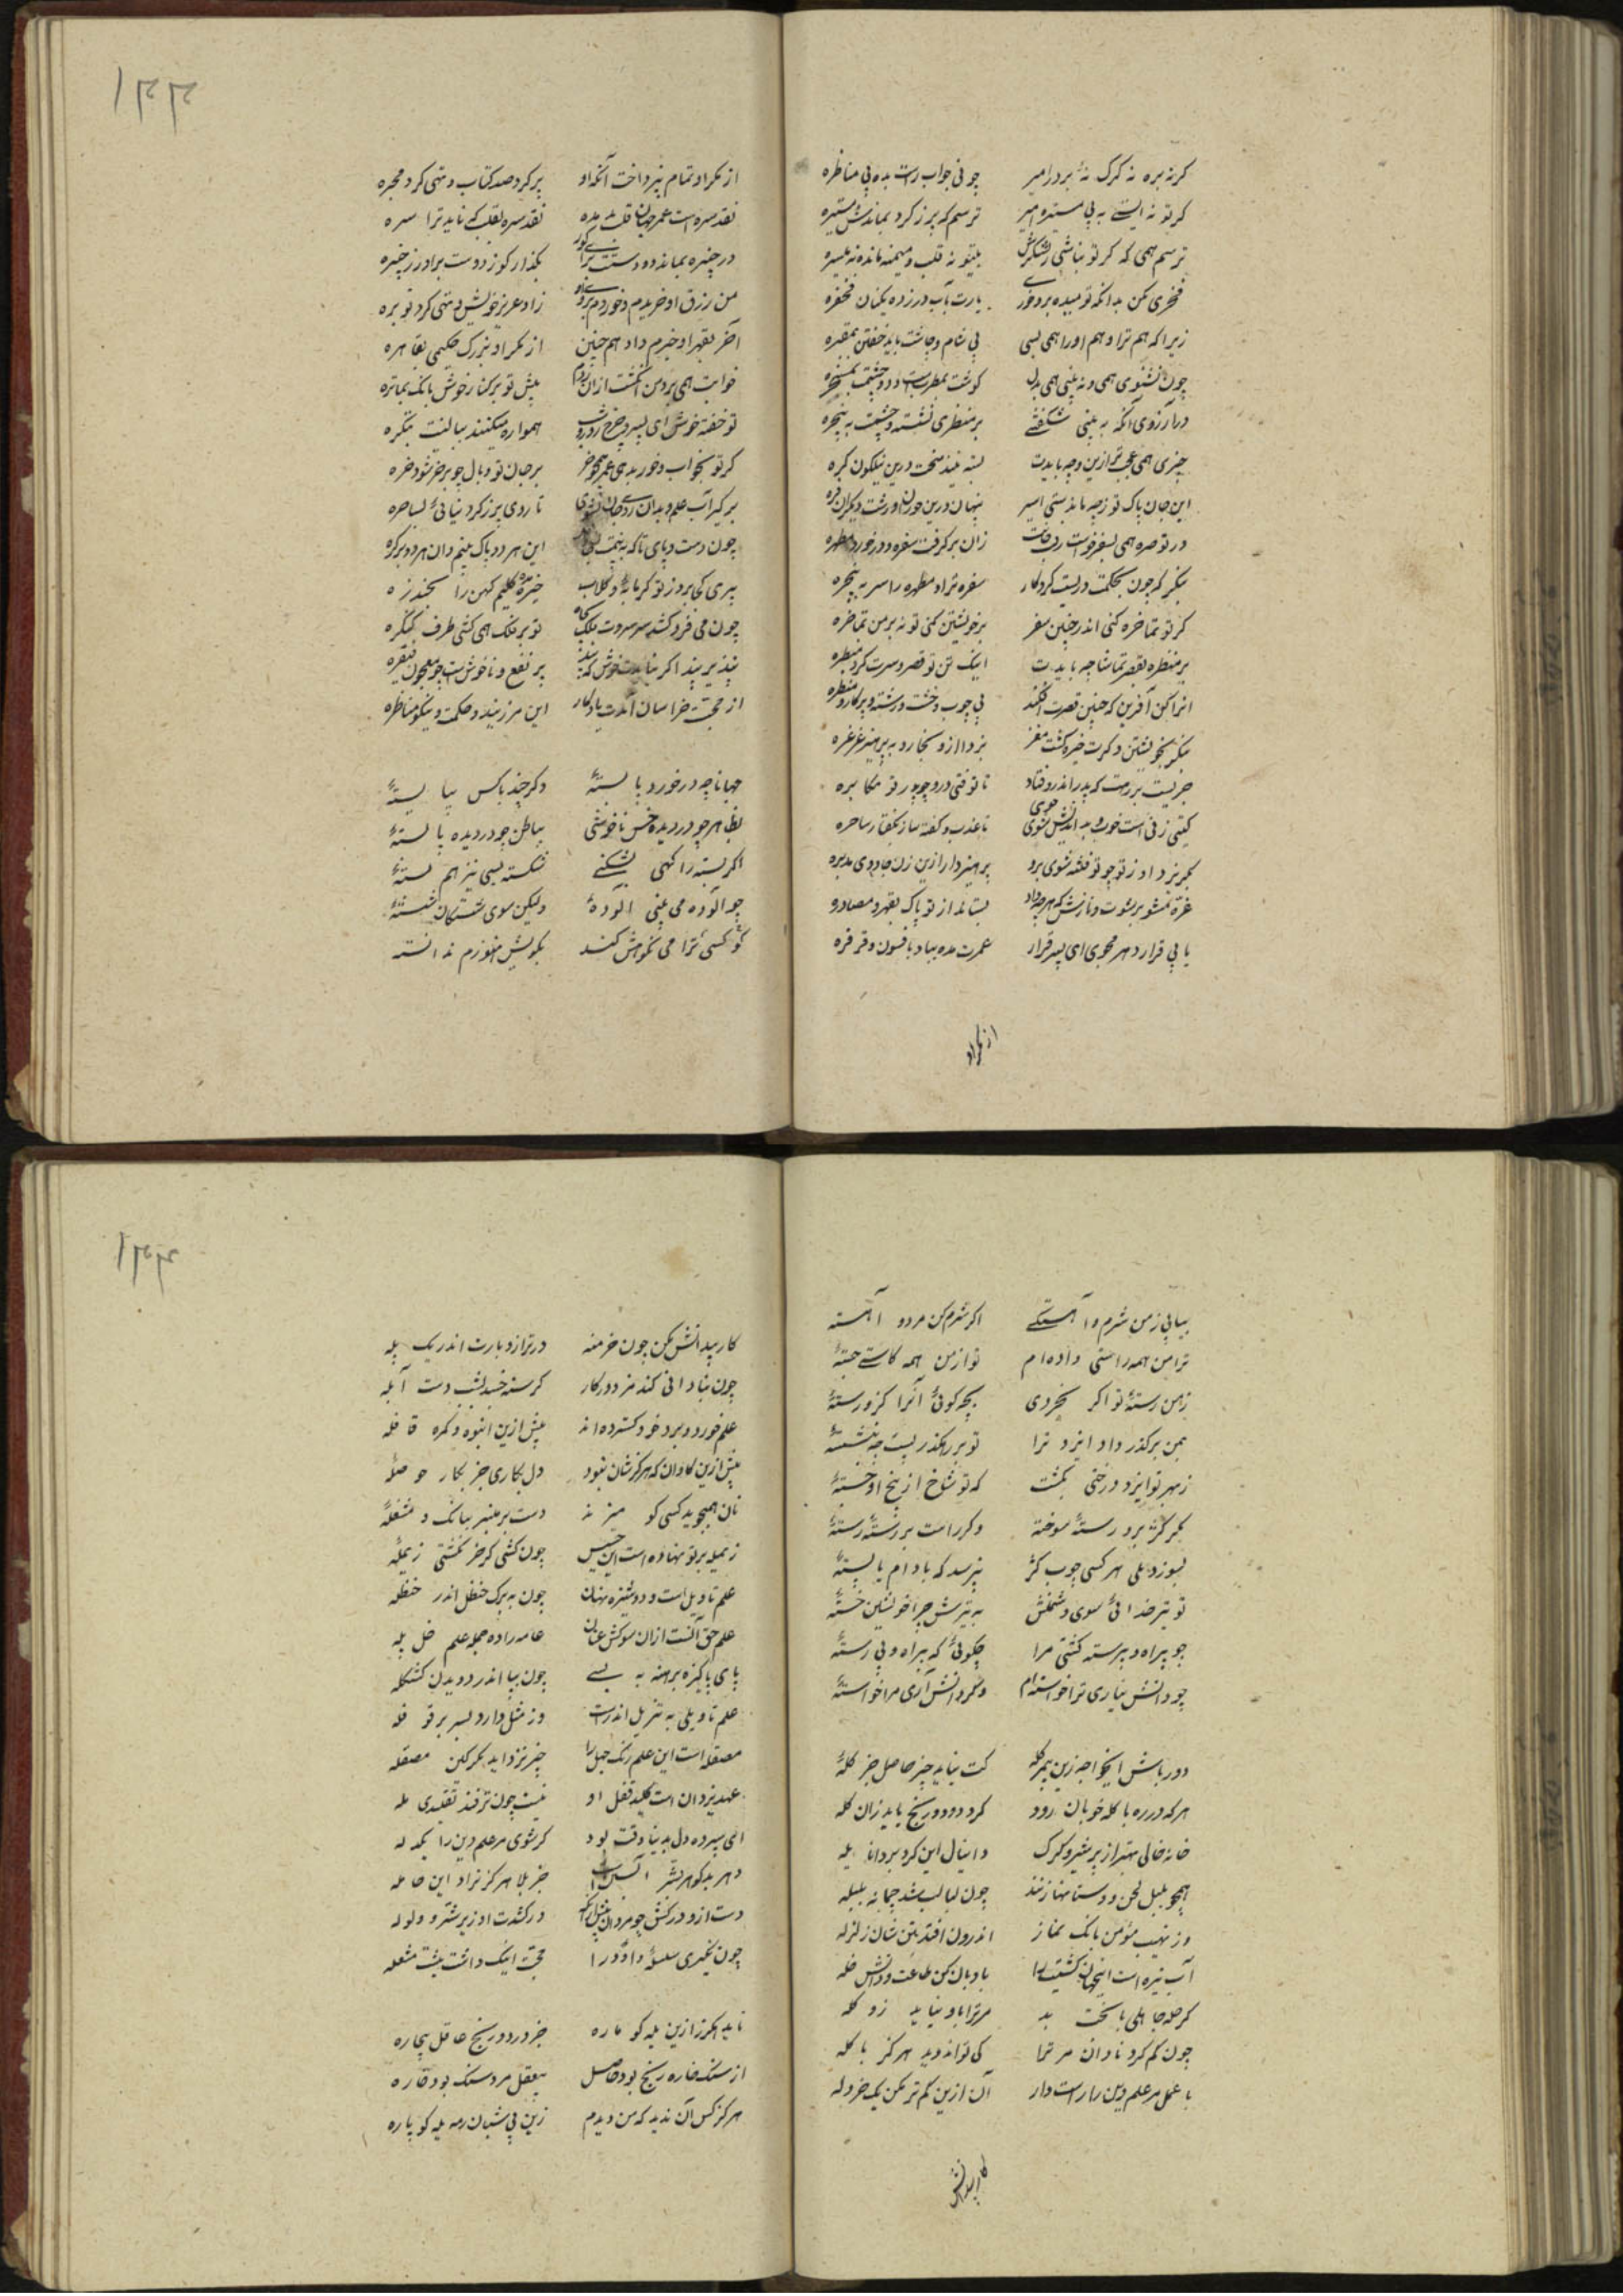 کرنه بره نه کرک نهٔ بر درامیر چونی جواب راست بده بی مناظره
کر تو نه ایستی به پی مستیره امیر ترسم که بر ز کرد بماندش ستیره
ترسم همی که کر تو نباشی ز لشکرش بیتو نه قلب و میمنه ماند نه میسره
فخری مکن بدانکه تو میده بره خوری یارت بآب در زده یکنان فخفره
زیرا که هم ترا و هم او را همی بسی بی شام و چاشت باید خفتن بمقبره
چون نشنوی همی و نه بینی همی بدل کوشت بمطربست و دو چشمت بمسخره
در آرزوی آنکه به بینی شکفتئی بر منظری نشسته و چشمت به پنجره
چیزی همی عجب تر ازین وجه بایدت بسته بیند سخت درین نیلکون کره
این جان پاک تو ز چه ماندستی اسیر پنهان درین حوزان و رشت و کران فره
در تو صره همی بسفر خواست رفت زان بر کرفت سفره و در خورد مطهره
بنکر که چون بحکمت در بست کردکار سفره ترا و مطهره را سر به پنجره
کر تو تماخره کنی اندر چنین سفر بر خویشتن کنی تو نه بر من تماخره
بر منظره بقصر تماشا چه بایدت اینک تن تو قصر و سرت کرد منظره
انرا کن آفرین که چنین قصرت افکند بی چوب و خشت و رشته و پرکار و مسطره
بنکر بخویشتن و کرت خیره کشت مغز بزدا ازو بخار و به پرهیز غرغره
حریست بر رهت که پدر اندرو فتاد تا نوفتی درو چو پدر تو مکابره
کیتی زنی است خوب و بد اندیش و شوی جوی با غدر و فتنه ساز بگفتار ساحره
بکریزد او ز تو چو تو فتنه شوی برو پرهیز دار ازین زن جادوی مدبره
غره مشو برشوت و نازش که هرچه داد بستاند از تو پاک بقهر و مصادره
با بی قرار دهر مجوی ای پسر قرار عمرت مده بباد بافسون و قرقره
از مکر او
۱۲۲
از مکر او تمام نپرداخت آنکه او بر کرد صد کتاب و تهی کرد محبره
نقد سره است عمر جهان قلب بد مده نقد سره بقلب که ناید ترا سره
در چنبره بمانده دستت برادری کور بگذار کوز دوست برادر ز چنبره
من رزق او خریدم و خوردم بروی او زاد عزیز خویش و تهی کرد توبره
آخر بقهر او خبرم داد هم چنین از مکر او بزرک حکیمی بقاهره
خوابت همی برد من انکشت ازان زدم پیش تو بر کنار خوش بانک بهاتره
تو خفته خوش ای پسر و چرخ و روز و شب همواره میکنند ببالینت پنکره
کر تو بخواب و خور بدهی عمر همچو خر بر جان تو وبال چو بر خر شود خره
بر کیر آب علم و بدان روی جان بشوی تا روی پر ز کرد نیائی بساهره
چون دست و پای تا که به بینمت این هر دو پاک بینم و ان هر دو بر کره
پیری کی برد ز تو کرمابه و کلاب خیره مده کلیم کهن را بکندزه
چون می فرو کشد سر سروت فلک بکاه تو بر فلک همی کشی طرف کنگره
بپذیر پند اکر نباشدت خوش که پند پر نفع و ناخوشست چو معجون تنقره
از حجت خراسان آمدت یادکار این مرز پند و حکمت و نیکو مناظره
جهانا چه در خورد بایستهٔ وکر چند باکس نپایستهٔ
بظاهر چو در دیده خس ناخوشی بباطن چو در دیده بایستهٔ
اکر بسته را کهی بشکنی شکسته بسی نیز هم بستهٔ
چو آلوده می بینی آلودهٔ ولیکن سوی شستکان شستهٔ
کسی کو ترا می نکوهش کند بکویش هنوزم ندانسته
بیابی ز من شرم و آهستکی اکر شرم کن مرد و آهسته
ترا من همه راستی دادهام تو از من همه کاستی جستهٔ
ز من رستهٔ تو اکر بخردی بچه کوئی آنرا کزو رستهٔ
بمن بر کذر داد ایزد ترا تو بر رهکذر پست چه نشستهٔ
ز بهر تو ایزد درختی بکشت که تو شاخ از بیخ او خستهٔ
اکر کژ برو رستهٔ سوخته وکر راست بر رستهٔ رستهٔ
بسوزد بلی هر کسی چوب کژ نپرسد که بادام یا پستهٔ
تو تیر خدائی سوی دشمنش به تیرش چرا خویشتن خستهٔ
چو بیراه و بیرسته کشتی مرا چکوئی که بیراه و بی رستهٔ
چو دانش بیاری ترا خواستهام وکر دانش آری مرا خواستهٔ
دور باش ایخواجه زین بیمر کله کت نیاید چیز حاصل جز کلهٔ
هر که در ره با کله خوبان رود کرد و درد و رنج یابد زان کله
خانه خالی بهتر از پر شیر و کرک دانیال این کرد بر دانا یله
همچو بلبل لحن و دستانها زنند چون لبالب شد چمانه بلبله
وز نهیب مؤمن بانک نماز اندرون افتد بتن شان زلزله
آب تیره است اینجهان کشتیت را بادبان کن طاعت و دانش خله
کر صله جاهلی با سخت بد مر ترا با و نباید زو کله
چون کم کرد نادان مر ترا کی تواند دید هرکز با کله
با عمل مر علم دین را راست دار آن ازین کمتر مکن یک خردله
کار بیدانش
۱۲۳
کار بیدانش مکن چون خر منه در ترازو بارت اندر یک پله
چون بنادانی کند مزدور کار کرسنه خسبد بشب دست آبله
علم خورد و برد خود کسترده اند پیش ازین انبوه و کمره قافله
پیش ازین کاوان که هرکز شان نبود دل بکاری جز بکار حوصله
نان همیجوید کسی کو میزند دست بر منبر ببانک و مشغلهٔ
زمیله بر تو نهاده است این خسیس چون کشی کر خر نکشتی زمیلهٔ
علم تاویل است و دوشیزه نهان چون به برک حنظل اندر حنظله
علم حق آنست ازان سو کش عنان عامه را ده جمله علم ضل پله
پای پاکیزه برهنه به بسی چون بپا اندر دویدن کشکله
علم تاویلی به تنزیل اندر است وز مثل دارد بسر بر قوفله
مصقله است این علم زنک جهل را چیز نزداید مکر کین مصقله
عهد یزدان است کلید قفل او نیست چون ترفند تقلیدی مله
ای سپرده دل بدنیا وقت بود کر شوی مر علم دین را یکدله
دهر بد کوهر بشر آبستن است جز بلا هرکز نزاد این حامله
دست ازو درکش چو مردان پیش از آنکه درکشدت او زیر شر و ولوله
چون نکیری سلسلهٔ داود را حجت اینک داشت پیشت مشعله
ناید هرکز ازین یله کو باره جز درد و رنج عاقل بیچاره
از سنک خاره رنج بود حاصل بیعقل مرد سنک بود خاره
هرکز کس آن ندید که من دیدم زین بی شبان رمه یله کو پاره